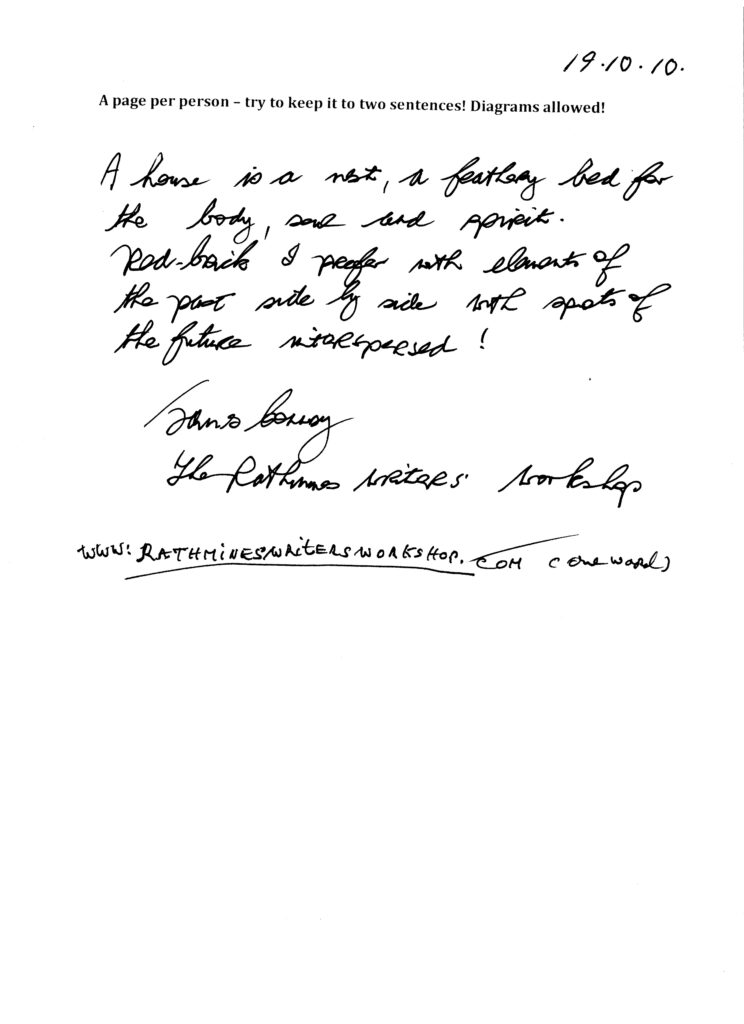 19.10.10.
A page per person – try to keep it to two sentences! Diagrams allowed!
A house is a nest, a feathery bed for
the body, soul and spirit.
Red-brick I prefer with elements of
the past side by side with spots of
the future interspersed!
Conroy
The Rathmines Writers' Workshop
www.RATHMINESWRITERSWORKSHOP.COM (one word)